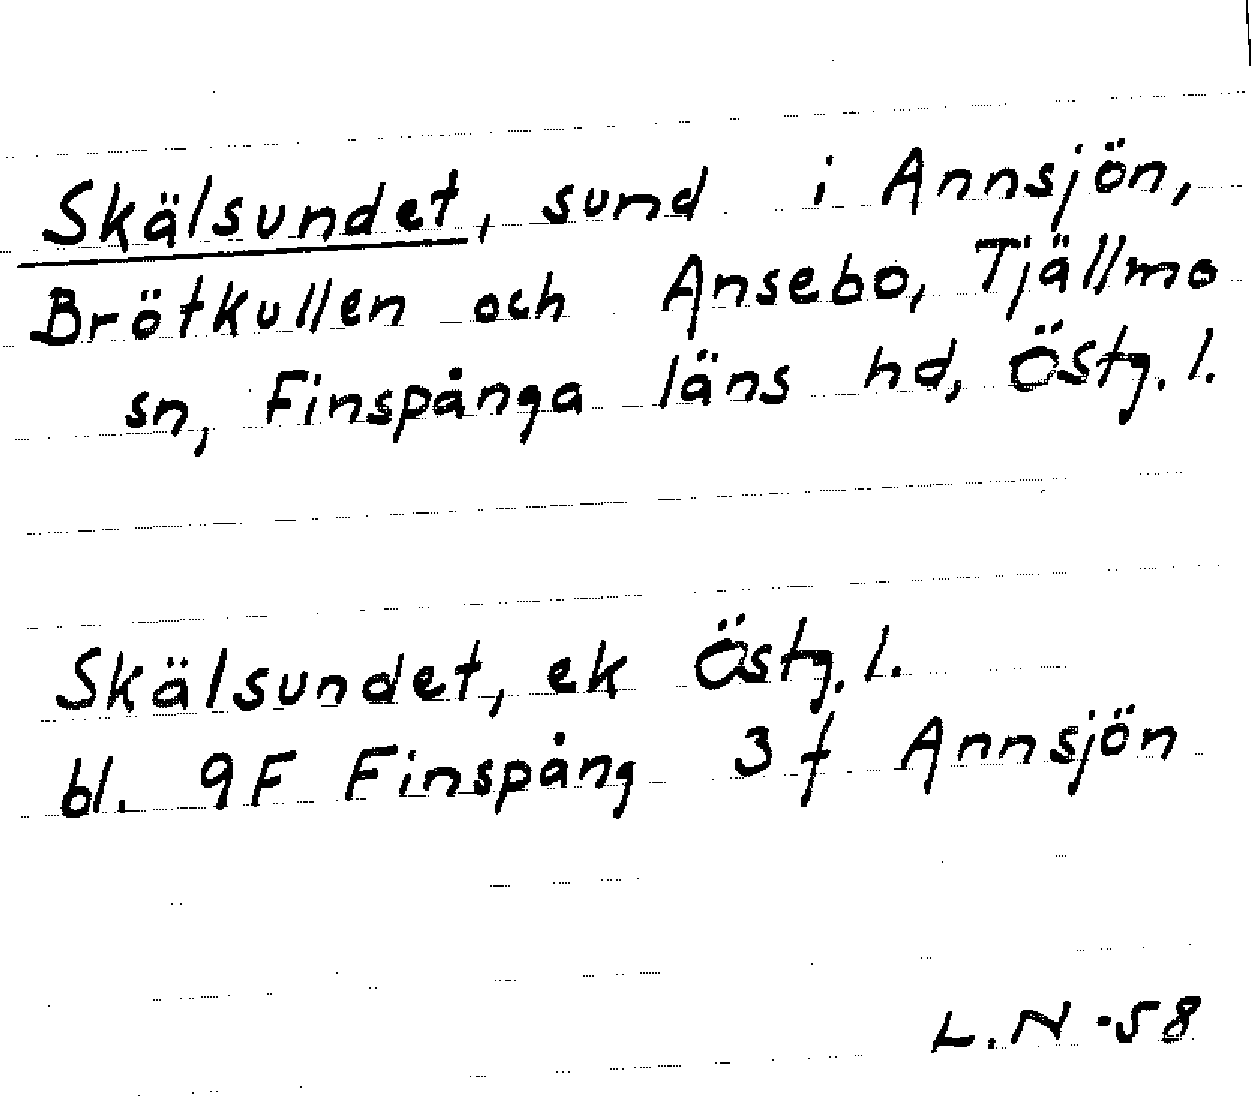 Skälsundet, sund i Annsjön,
Brötkullen och Ansebo, Tjällmo
sn, Finspånga läns hd, Östg. l.
Skälsundet, ek Östg. l.
bl. 9F Finspång 3 f Annsjön
L.N -58